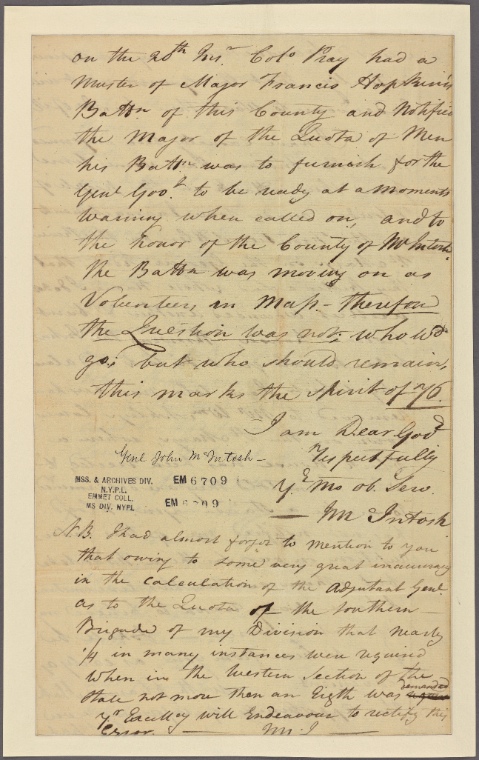 on the 20th Inst. Colo Pray had a
Muster of Major Francis Hopkins
Battn of this County and Notified
the Major of the Quota of Men
his Battn was to furnish for the
Genl Govt to be ready at a moments
warning when called on, and to
the honor of the County of McIntosh
the Battn was moving on as
Volunteers in Mass - therefore
the Question was not who wd
go; but who should remain,
this marks the spirit of 76.
I am Dear Govr
respectfully
Yr Mo ob. Serv.
McIntosh
Genl John McIntosh -
MSS. & ARCHIVES DIV.
N.Y.P.L.
EMMET COLL.
MS DIV. NYPL
EM 6709
EM 6709
N.B. I had almost forgot to mention to you
that owing to some very great inaccuracy
in the calculation of the Adjutant Genl.
as to the Quota of the Southern
Brigade of my Division that nearly
1/4 in many instances were required
when in the Western Section of the
State not more then an Eigth was demanded
Yr Excellcy will Endeavour to rectify this
Error. McI